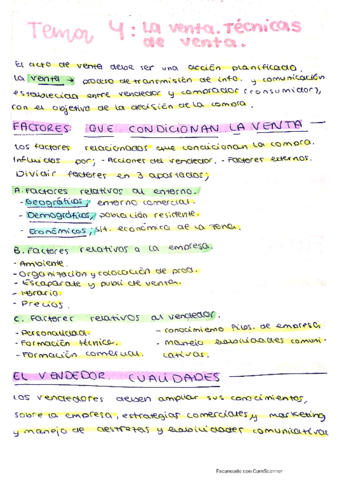 Tema 4: La venta. Técnicas
de venta.
El acto de venta debe ser una acción planificada.
La venta → proceso de transmisión de info. y comunicación
establecida entre vendedor y comprador (consumidor),
con el objetivo de la decisión de la compra.
FACTORES QUE CONDICIONAN LA VENTA
Los factores relacionados que condicionan la compra.
Influidos por; - Acciones del vendedor. - Factores externos.
Dividir factores en 3 apartados;
A. Factores relativos al entorno.
- Geográficos; entorno comercial.
- Demográficos; población residente.
- Económicos; sit. económica de la zona.
B. Factores relativos a la empresa.
- Ambiente.
- Organización y colocación de prod.
- Escaparate y publi de venta.
- Horario.
- Precios.
C. Factores relativos al vendedor.
- Personalidad. - conocimiento de empresa.
- Formación técnica. - manejo habilidades comuni-
- Formación comercial. cativas.
EL VENDEDOR CUALIDADES
Los vendedores deben ampliar sus conocimientos,
sobre la empresa, estrategias comerciales y marketing
y manejo de destrezas y habilidades comunicativas
Escaneado con CamScanner